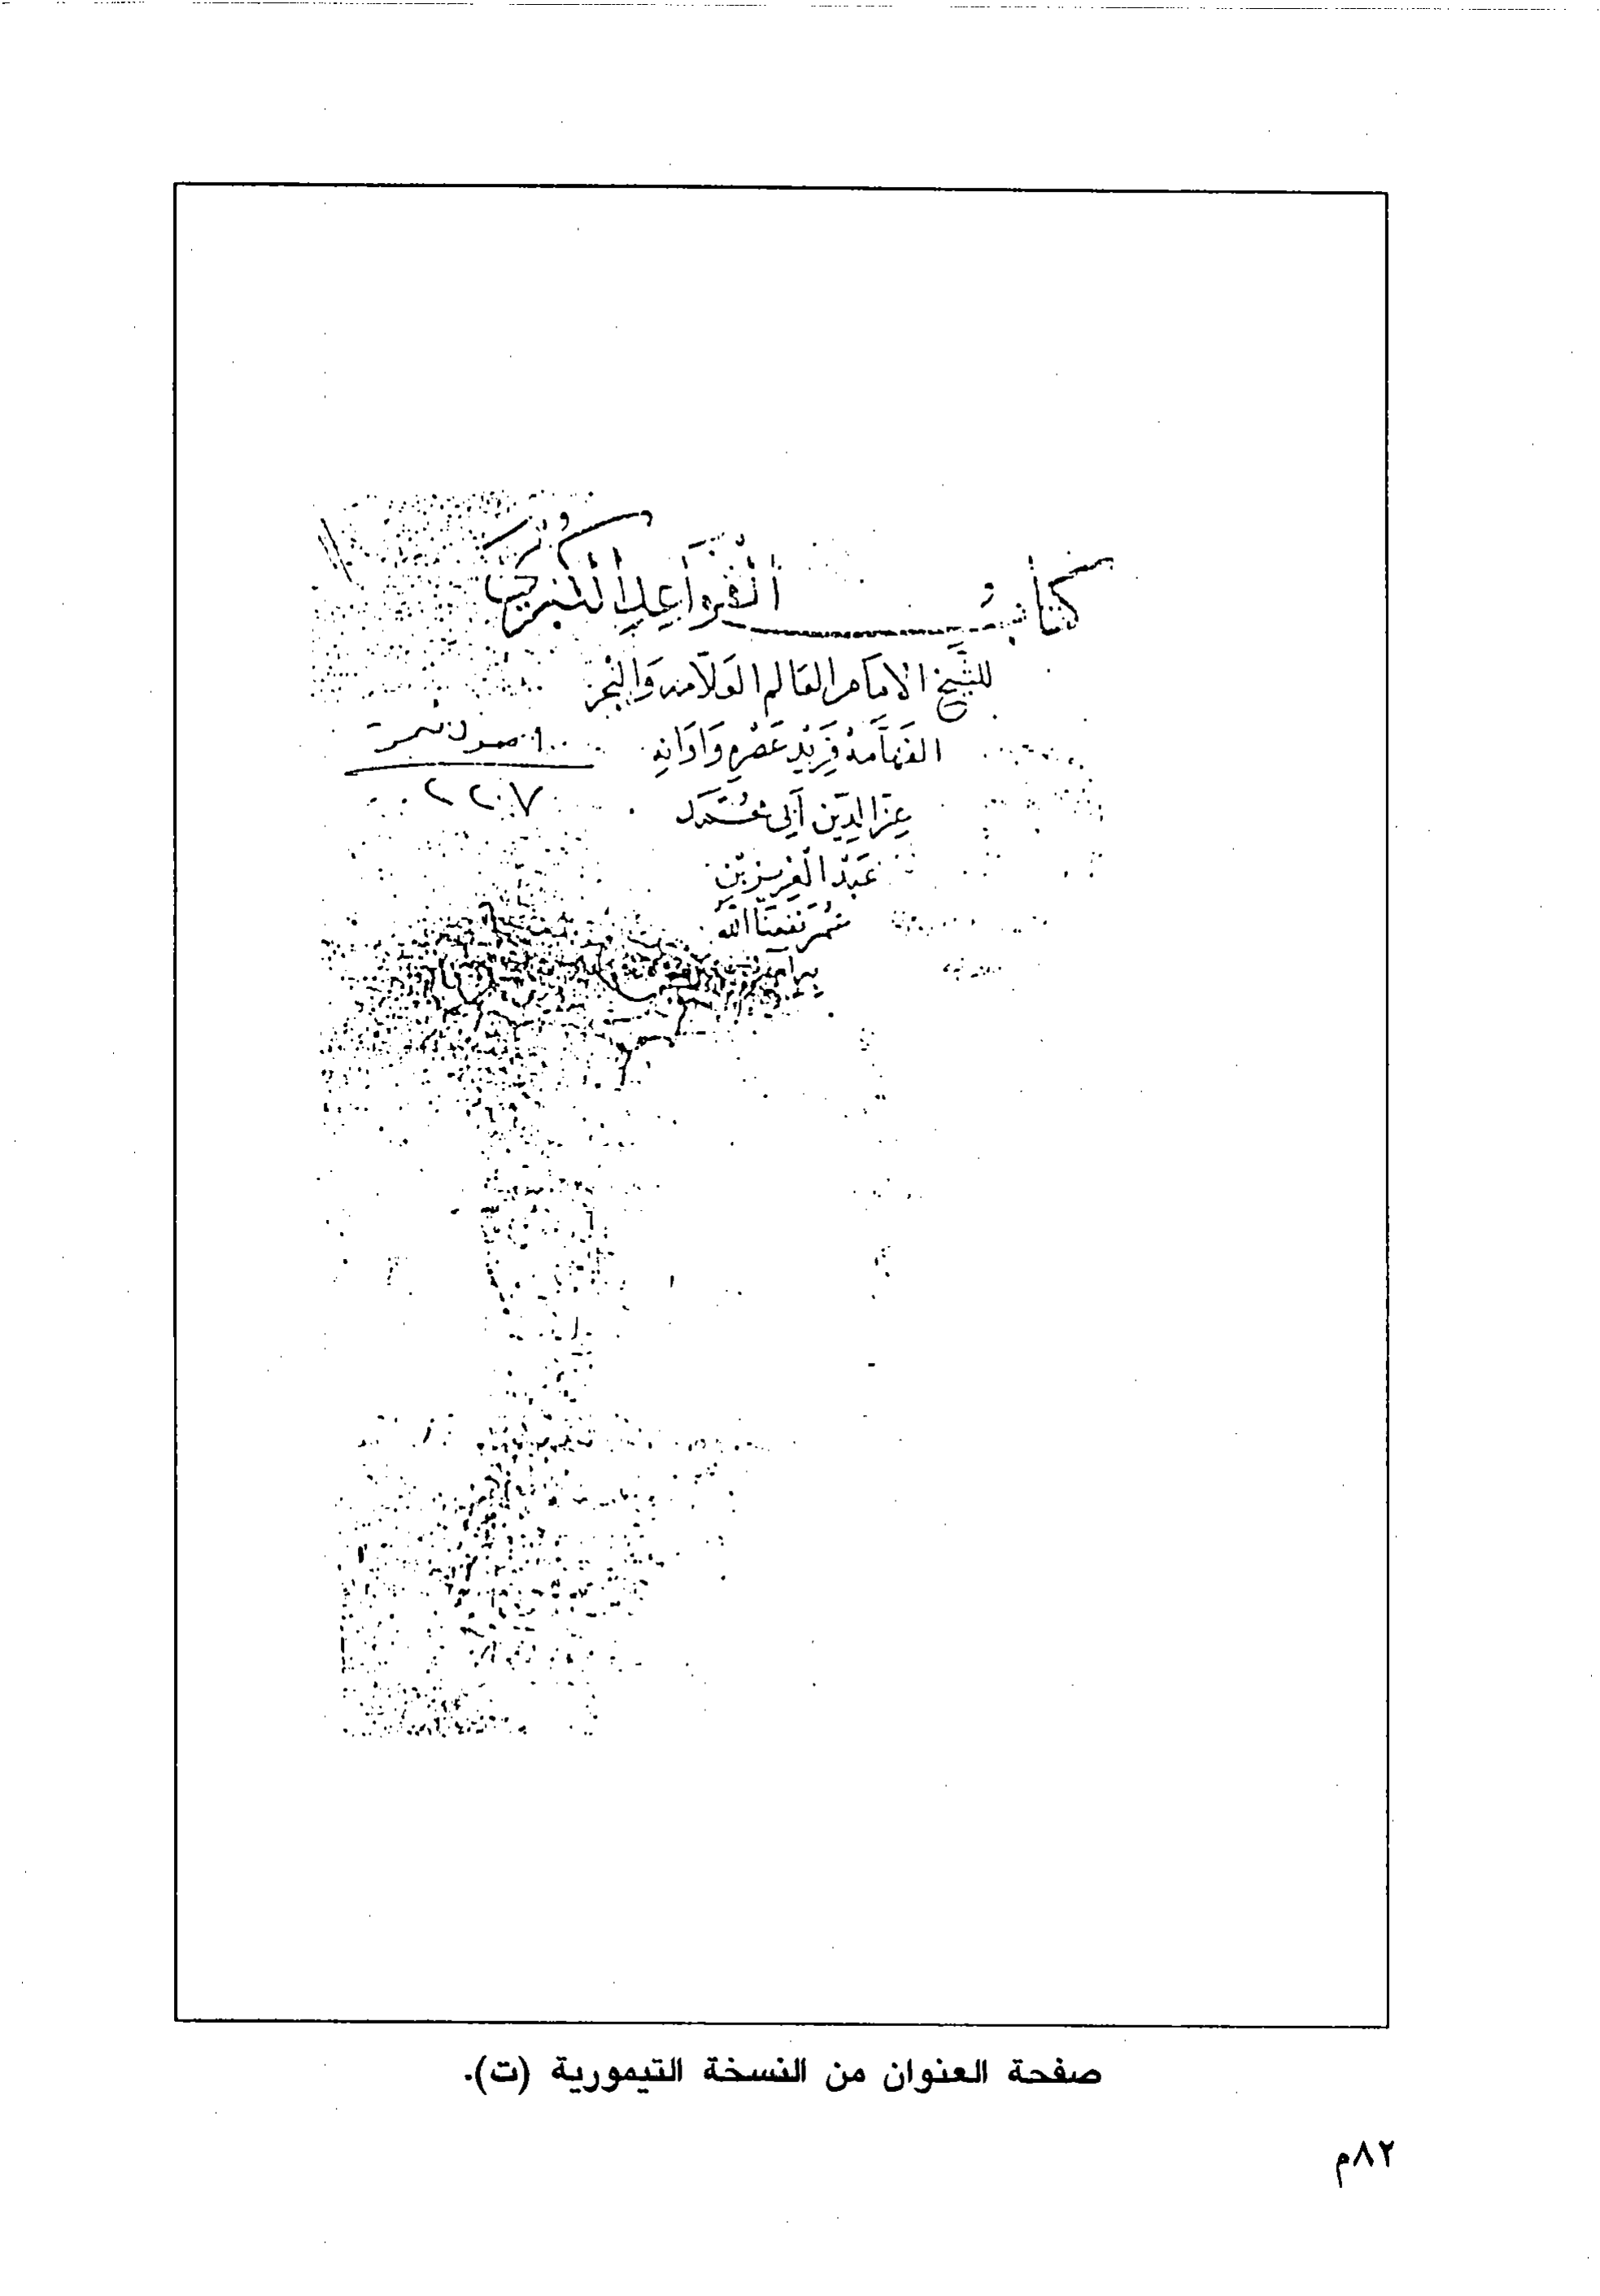 كتابُ القَواعد
للشَّيخ الامَام العَالم العَلّامه وَالبحر
الفَهَّامة فَرِيْد عَصْرِه وَاوَانِه
عِزّ الدِّين أَبي مُحَمَّد
عَبْد العَزيز بْن
نفعنَا الله
صفحة العنوان من النسخة التيمورية (ت).
٨٢م